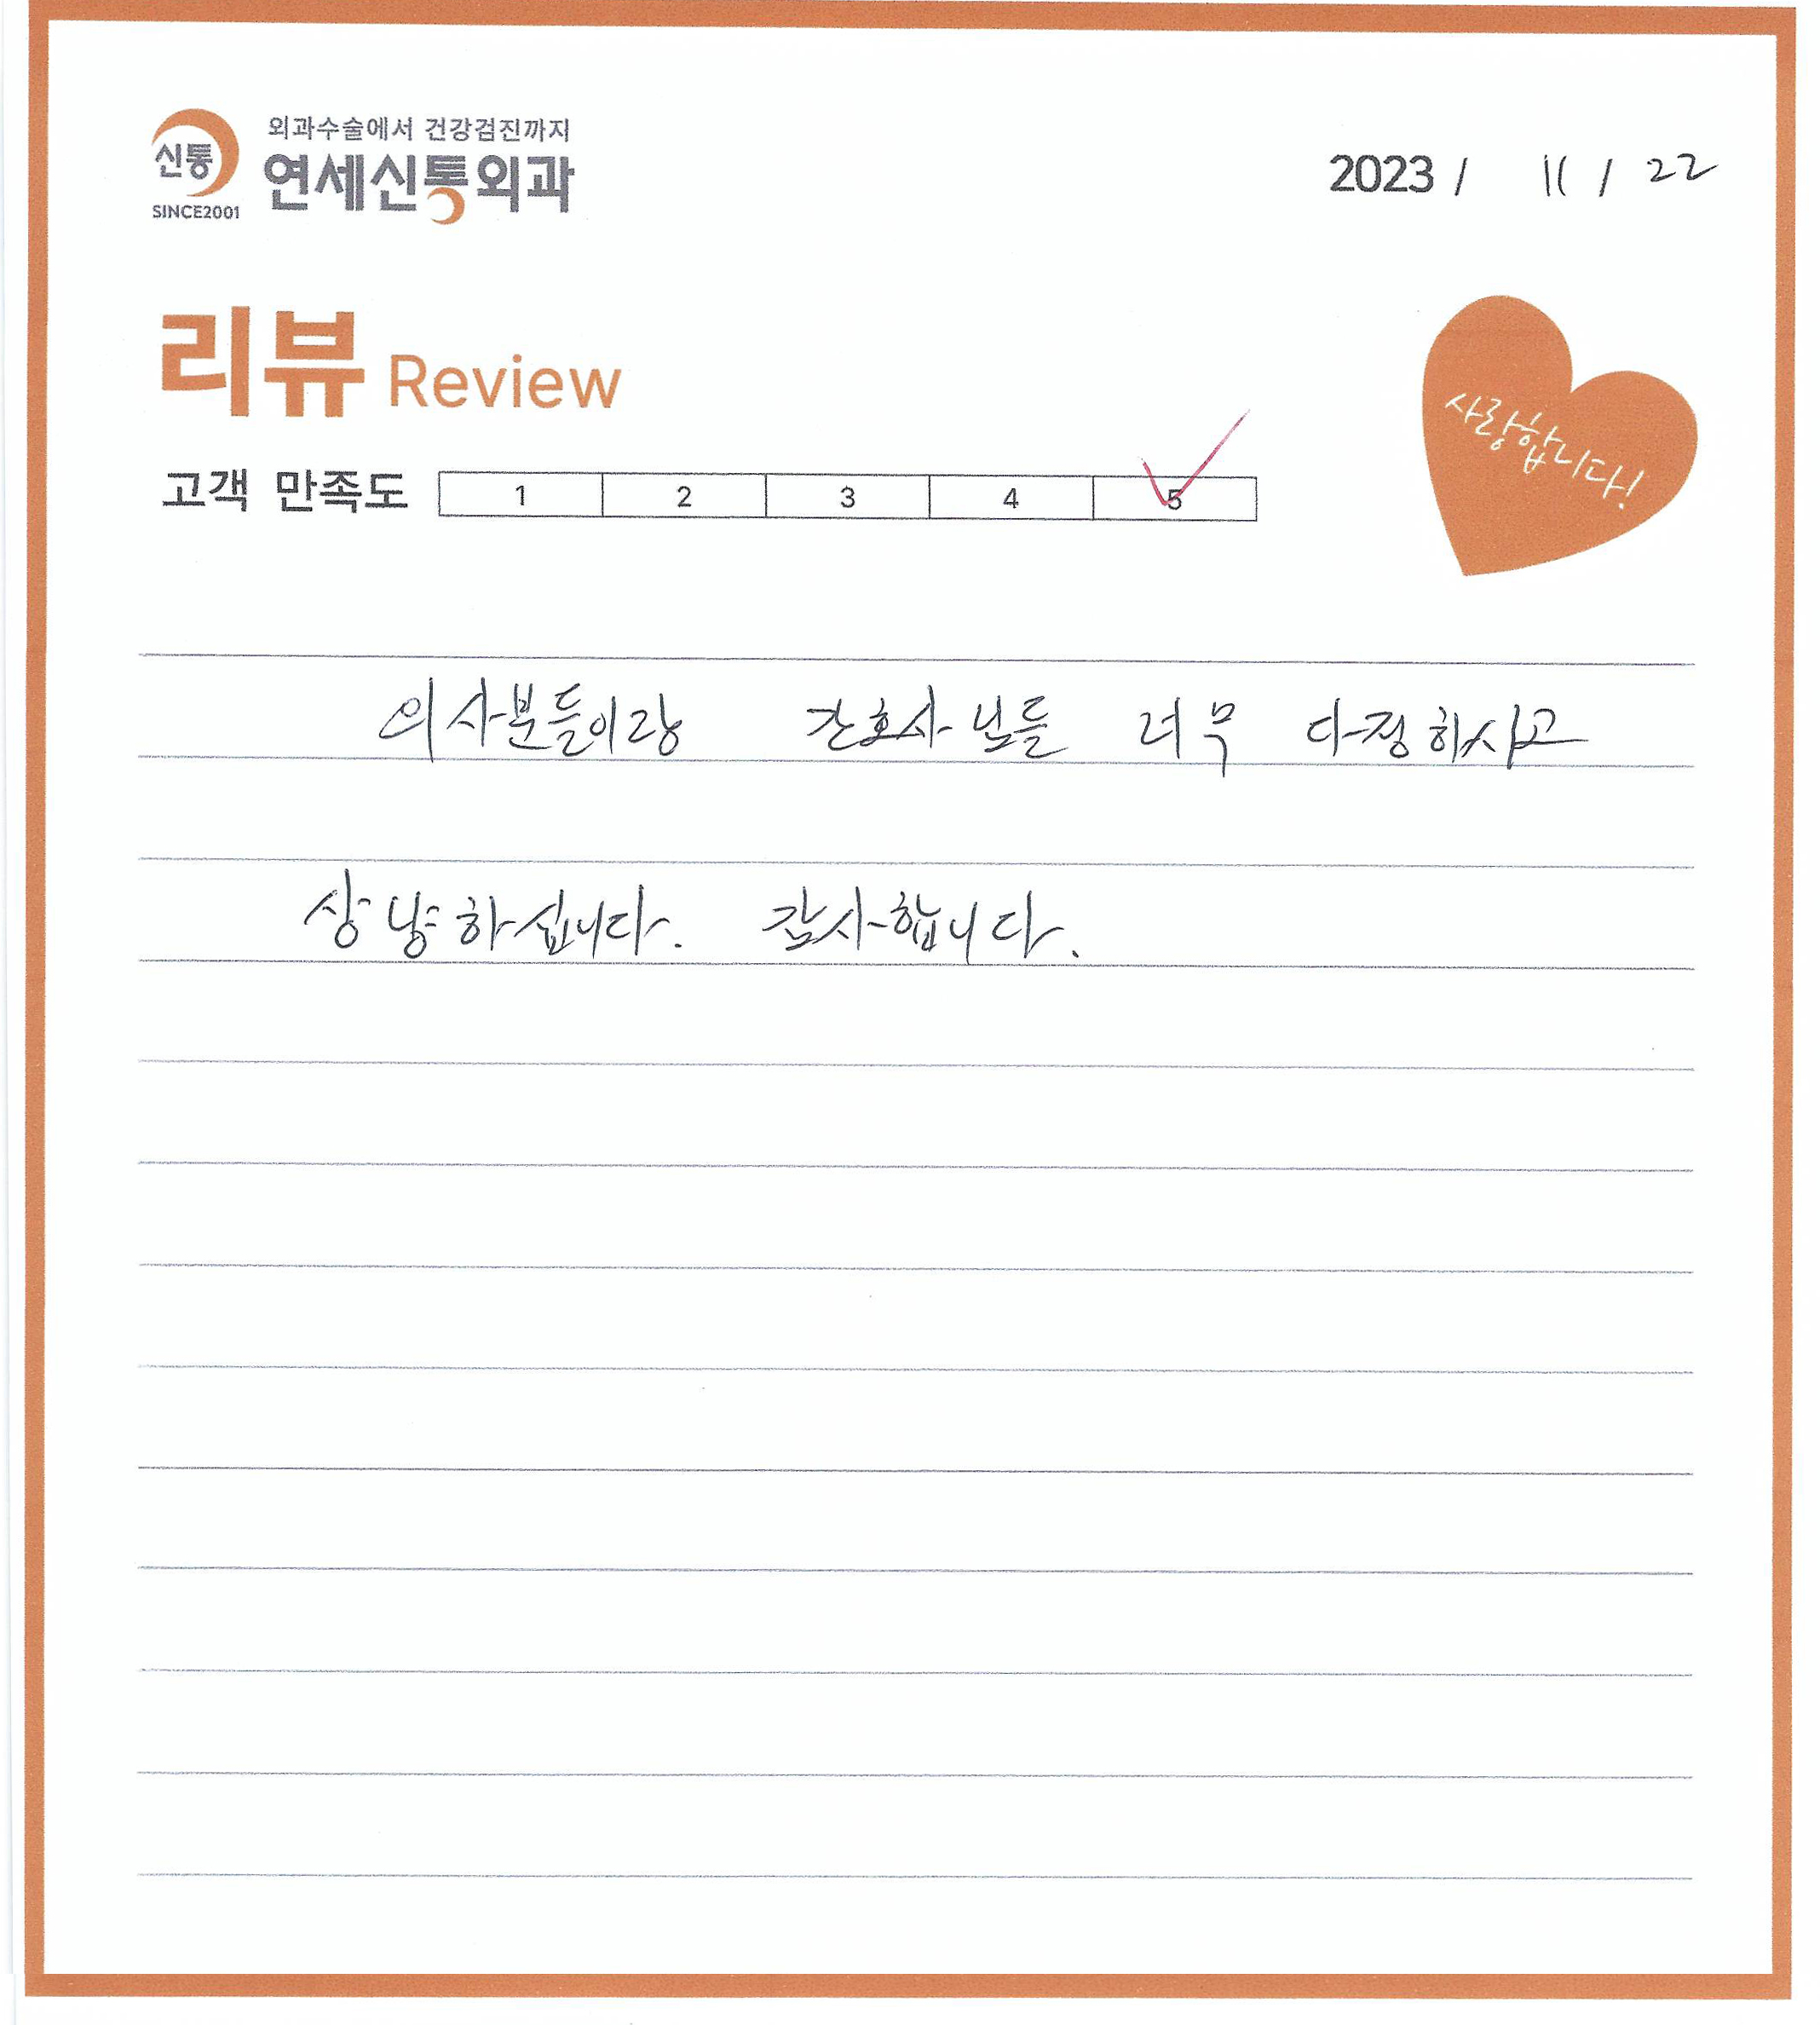 외과수술에서 건강검진까지
신통 연세신통외과
SINCE2001
2023 / 11 / 22
리뷰 Review
사랑합니다!
고객 만족도 1 2 3 4 5
의사분들이랑 간호사님들 너무 다정하시고
상냥하십니다. 감사합니다.